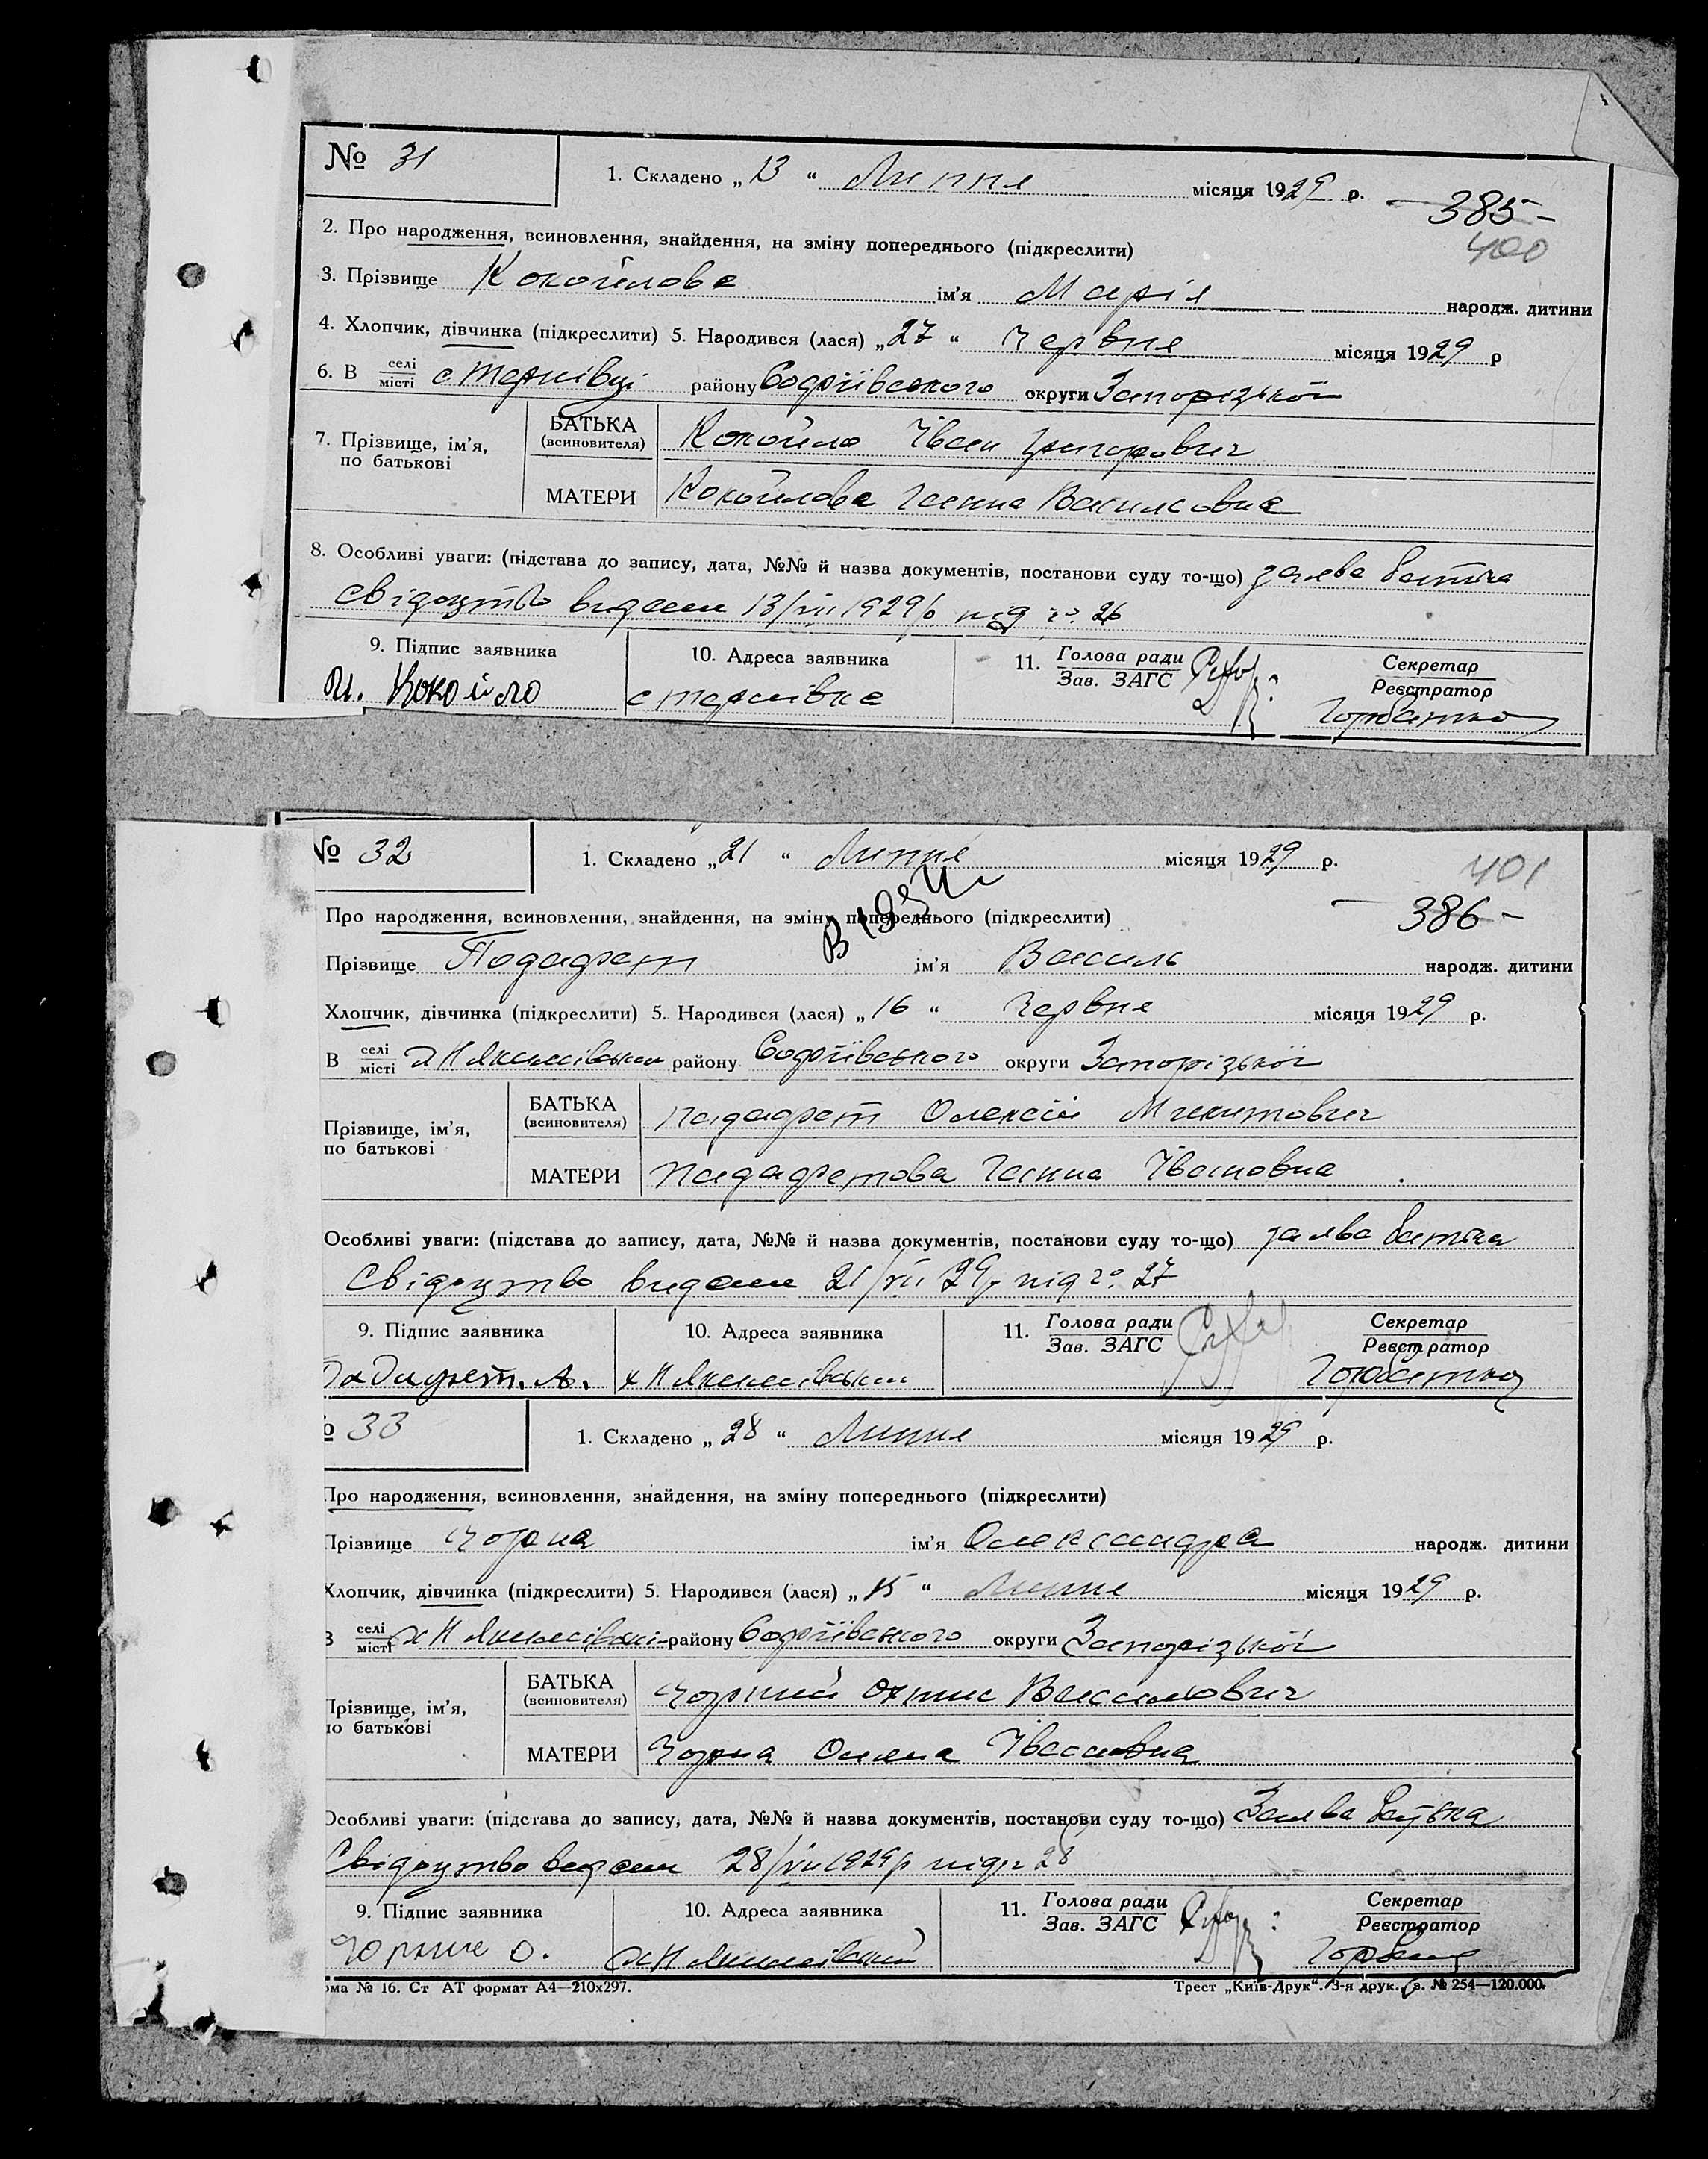 № 31
1. Складено „ 13 “ Липня місяця 1929 р.
385
400
2. Про народження, всиновлення, знайдення, на зміну попереднього (підкреслити)
3. Прізвище Кокойлова ім'я Марія народж. дитини
4. Хлопчик, дівчинка (підкреслити) 5. Народився (лася) „ 27 “ Червня місяця 1929 р
6. В селі місті с. Тернівці району Софіївського округи Запорізької
7. Прізвище, ім'я, по батькові
БАТЬКА (всиновителя) Кокойло Іван Григорович
МАТЕРИ Кокойлова Ганна Василовна
8. Особливі уваги: (підстава до запису, дата, №№ й назва документів, постанови суду то-що) заява батька
свідоцтво видани 13/VII 1929 р під № 26
9. Підпис заявника
10. Адреса заявника
11. Голова ради Зав. ЗАГС
Секретар Реєстратор
И. Кокойло
с Тернівка
Горбатко
№ 32
1. Складено „ 21 “ Липня місяця 1929 р.
401
Про народження, всиновлення, знайдення, на зміну попереднього (підкреслити)
386
Прізвище Ім'я Василь народж. дитини
Хлопчик, дівчинка (підкреслити) 5. Народився (лася) „ 16 “ Червня місяця 1929 р.
В селі місті району Софіївського округи Запорізької
Прізвище, ім'я, по батькові
БАТЬКА (всиновителя) Олексій Микитович
МАТЕРИ Ганна Івановна
Особливі уваги: (підстава до запису, дата, №№ й назва документів, постанови суду то-що) заява батька
Свідоцтво видани 21/VII 29 р під № 27
9. Підпис заявника
10. Адреса заявника
11. Голова ради Зав. ЗАГС
Секретар Реєстратор
Горбатко
33
1. Складено „ 28 “ Липня місяця 1929 р.
Про народження, всиновлення, знайдення, на зміну попереднього (підкреслити)
Прізвище Чорна ім'я Олександра народж. дитини
Хлопчик, дівчинка (підкреслити) 5. Народився (лася) „ 15 “ Липня місяця 1929 р.
селі місті району Софіївського округи Запорізької
Прізвище, ім'я, по батькові
БАТЬКА (всиновителя) Чорний Василович
МАТЕРИ Чорна Олена Івановна
Особливі уваги: (підстава до запису, дата, №№ й назва документів, постанови суду то-що) Заява батька
Свідоцтво видани 28/VII 1929 р під № 28
9. Підпис заявника
10. Адреса заявника
11. Голова ради Зав. ЗАГС
Секретар Реєстратор
О.
ма № 16. Ст АТ формат А4—210х297.
Трест „Київ-Друк“. 3-я друк. з. № 254—120.000.